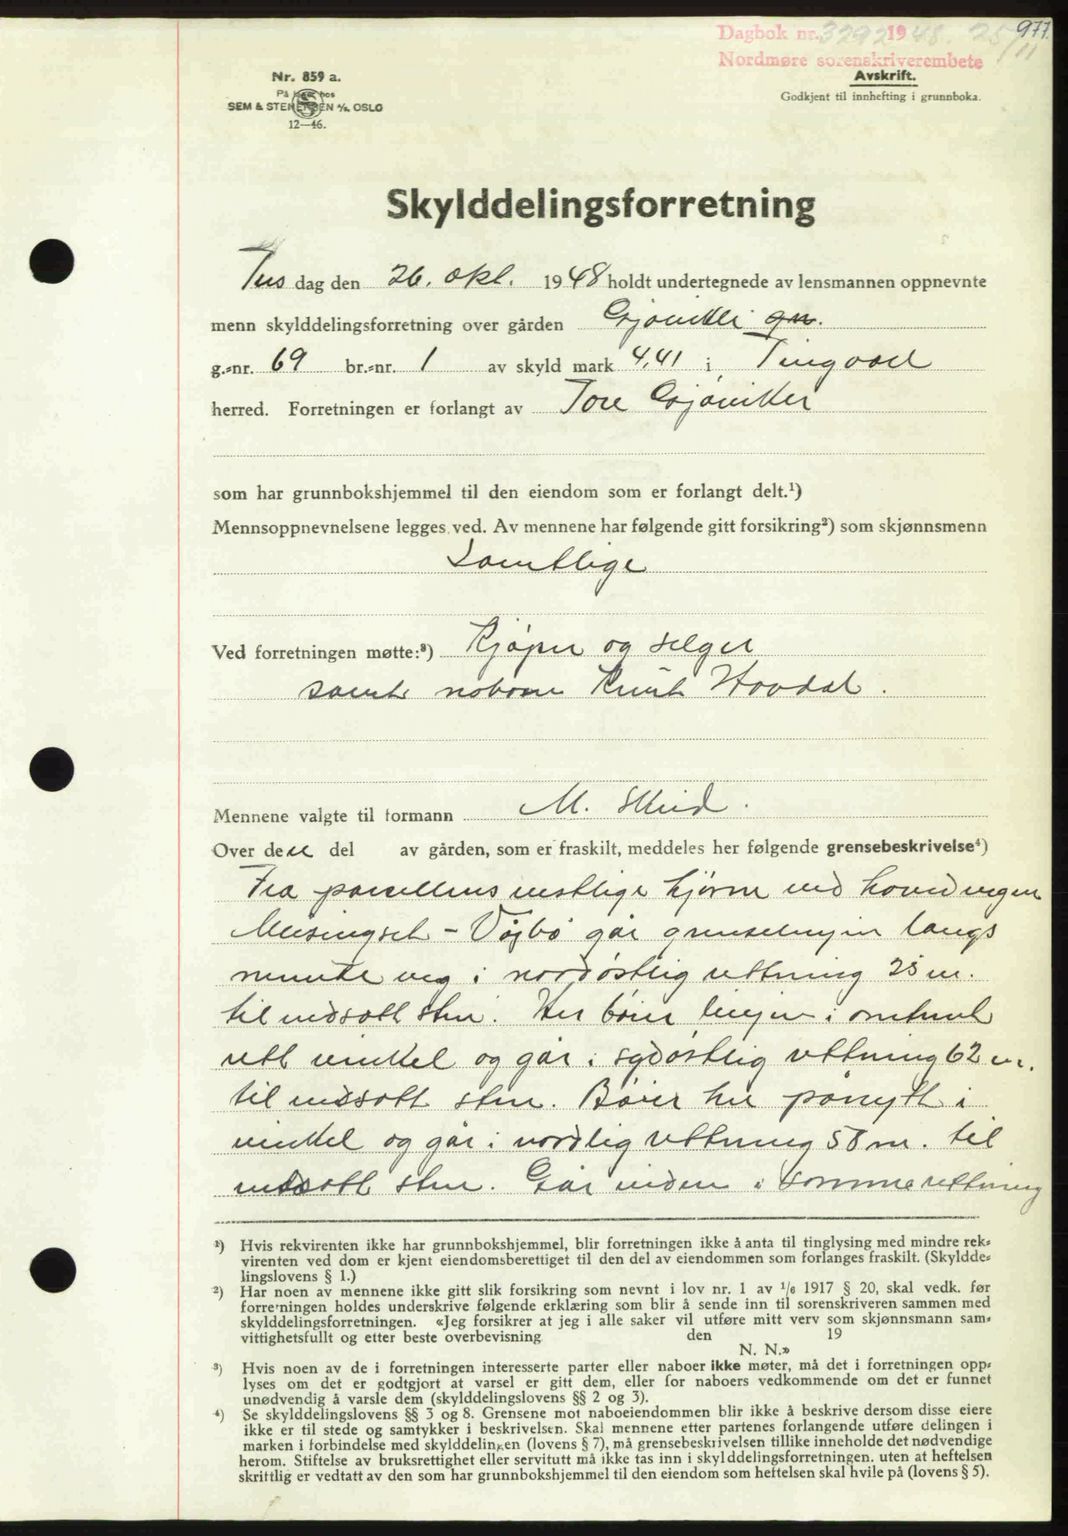 977.
Dagbok nr. 3292 1948. 25/11
Nordmøre sorenskriverembete
Nr. 859 a.
På lager hos
SEM & STENERSEN A/S, OSLO
12—46.
Avskrift.
Godkjent til innhefting i grunnboka.
Skylddelingsforretning
Tirs dag den 26. okt. 1948 holdt undertegnede av lensmannen oppnevnte
menn skylddelingsforretning over gården Gjøvikli
g.-nr. 69 br.-nr. 1 av skyld mark 4,41 i Tingvoll
herred. Forretningen er forlangt av Tore Gjøvikli
som har grunnbokshjemmel til den eiendom som er forlangt delt.¹)
Mennsoppnevnelsene legges ved. Av mennene har følgende gitt forsikring²) som skjønnsmenn
Samtlige
Ved forretningen møtte:³) Kjøper og selger
samt naboen Knut Hovdal.
Mennene valgte til formann M. Skeid.
Over den del av gården, som er fraskilt, meddeles her følgende grensebeskrivelse⁴)
Fra parsellens vestlige hjørne ved hovedvegen
Meisingset – Vågbø går grenselinjen langs
nevnte veg i nordøstlig retning 25 m.
til nedsatt sten. Her bøier linjen i omtrent
rett vinkel og går i sydøstlig retning 62 m.
til nedsatt sten. Bøier her på nytt i
vinkel og går i nordlig retning 58 m. til
nedsatt sten. Går videre i samme retning
¹) Hvis rekvirenten ikke har grunnbokshjemmel, blir forretningen ikke å anta til tinglysing med mindre rek-
virenten ved dom er kjent eiendomsberettiget til den del av eiendommen som forlanges fraskilt. (Skyldde-
lingslovens § 1.)
²) Har noen av mennene ikke gitt slik forsikring som nevnt i lov nr. 1 av 1/6 1917 § 20, skal vedk. før
forretningen holdes underskrive følgende erklæring som blir å sende inn til sorenskriveren sammen med
skylddelingsforretningen. «Jeg forsikrer at jeg i alle saker vil utføre mitt verv som skjønnsmann sam-
vittighetsfullt og etter beste overbevisning den 19
N. N.»
³) Hvis noen av de i forretningen interesserte parter eller naboer ikke møter, må det i forretningen opp-
lyses om det er godtgjort at varsel er gitt dem, eller for naboers vedkommende om det er funnet
unødvendig å varsle dem (skylddelingslovens §§ 2 og 3).
⁴) Se skylddelingslovens §§ 3 og 8. Grensene mot naboeiendommen blir ikke å beskrive dersom disse eiere
ikke er til stede og samtykker i beskrivelsen. Skal mennene etter partenes forlangende utføre delingen i
marken i forbindelse med skylddelingen (lovens § 7), må grensebeskrivelsen tillike inneholde det nødvendige
herom. Stiftelse av bruksrettighet eller servitutt må ikke tas inn i skylddelingsforretningen. uten at heftelsen
skriftlig er vedtatt av den som har grunnbokshjemmel til den eiendom som heftelsen skal hvile på (lovens § 5).